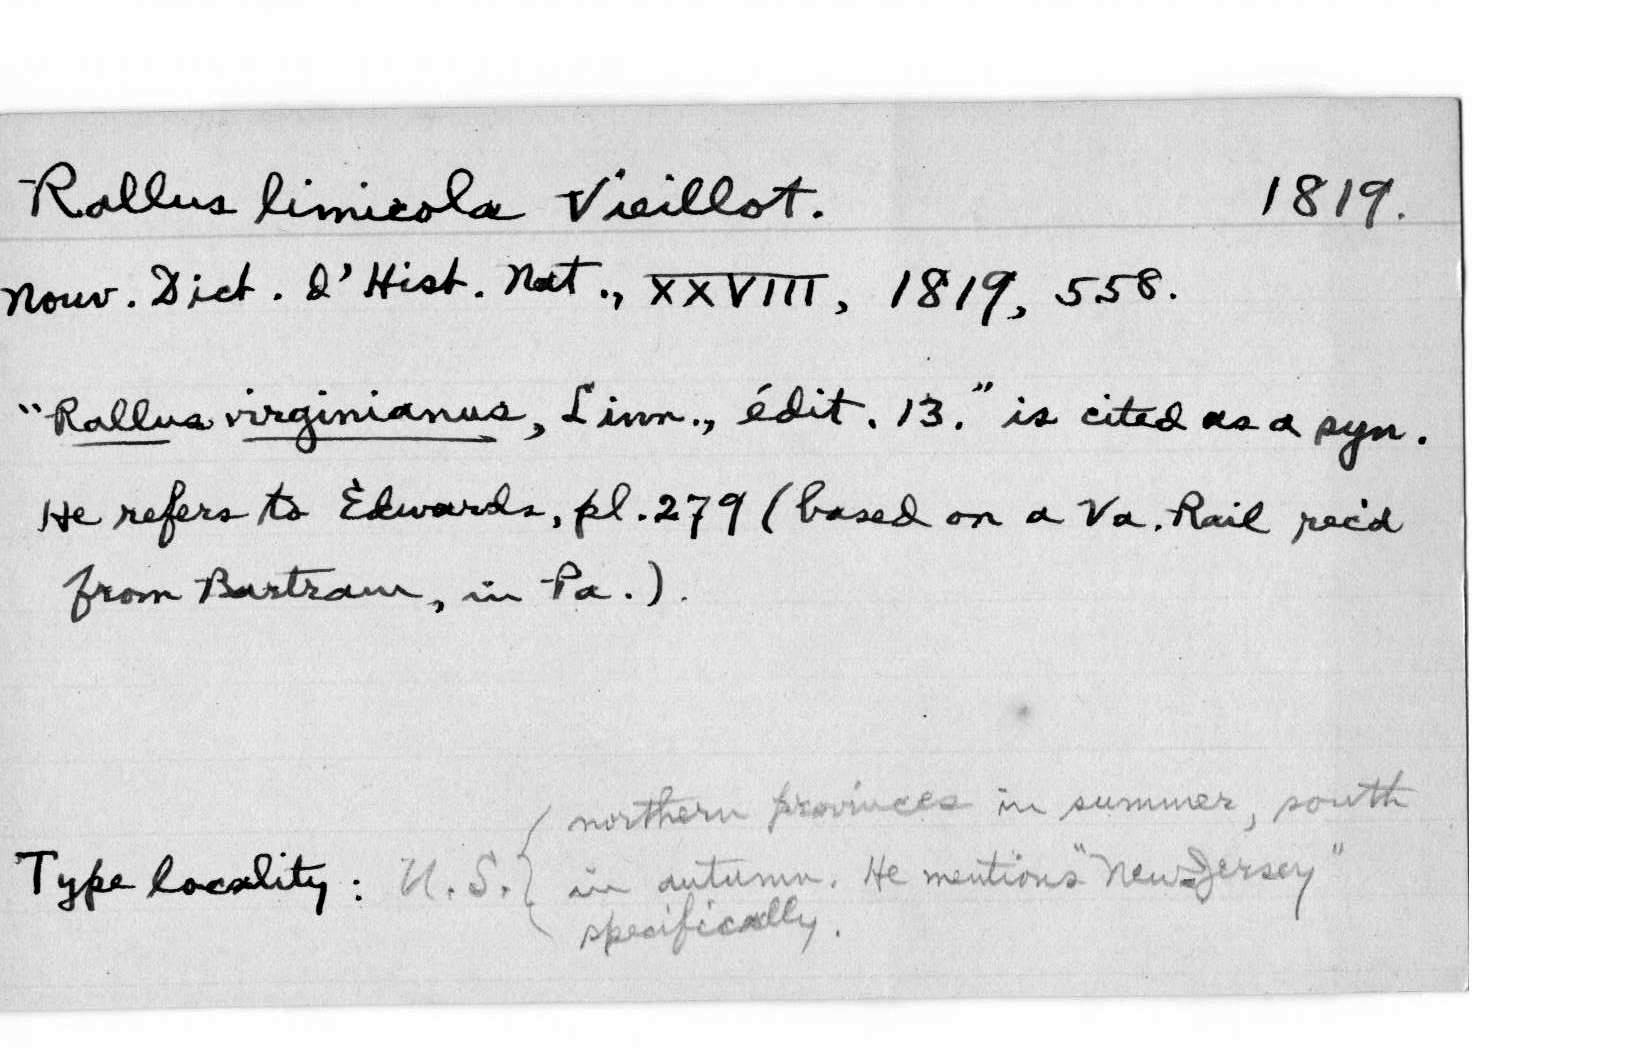 Rallus limicola Vieillot. 1819.
Nouv. Dict. d'Hist. Nat., XXVIII, 1819, 558.
"Rallus virginianus, Linn., édit. 13." is cited as a syn.
He refers to Edwards, pl. 279 (based on a Va. Rail rec'd
from Bartram, in Pa.).
northern provinces in summer, south
Type locality: U.S. { in autumn. He mentions "New-Jersey"
specifically.